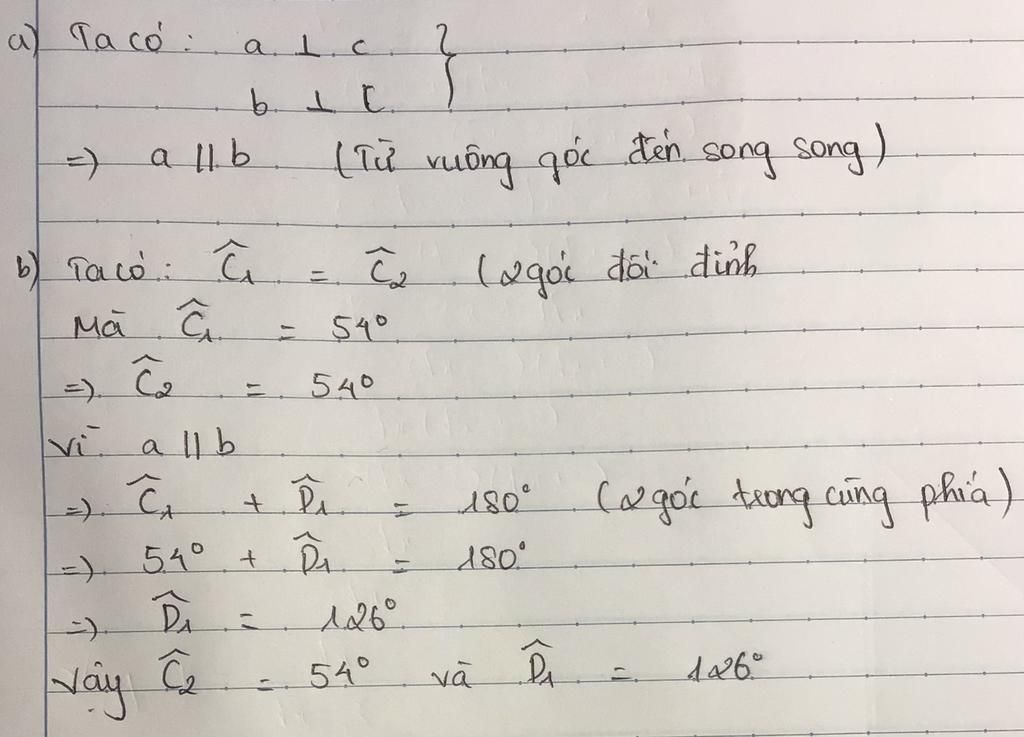 a) Ta có: a ⊥ c }
b ⊥ c
=> a // b (Từ vuông góc đến song song)
b) Ta có: Ĉ₁ = Ĉ₂ (2 góc đối đỉnh
Mà Ĉ₁ = 54°
=> Ĉ₂ = 54°
Vì a // b
=> Ĉ₁ + D̂₁ = 180° (2 góc trong cùng phía)
=> 54° + D̂₁ = 180°
=> D̂₁ = 126°
Vậy Ĉ₂ = 54° và D̂₁ = 126°